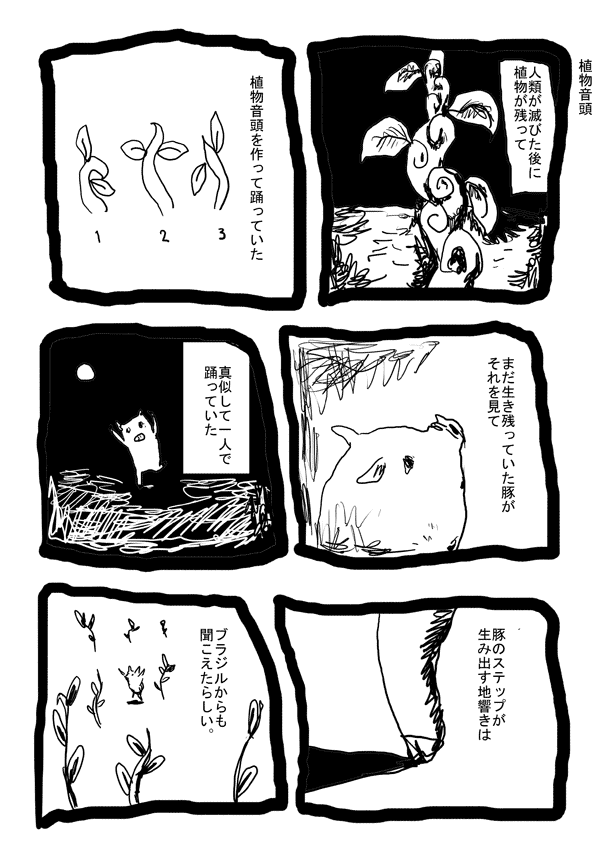 植物音頭
人類が滅びた後に
植物が残って
植物音頭を作って踊っていた
1 2 3
まだ生き残っていた豚が
それを見て
真似して一人で
踊っていた
豚のステップが
生み出す地響きは
ブラジルからも
聞こえたらしい。